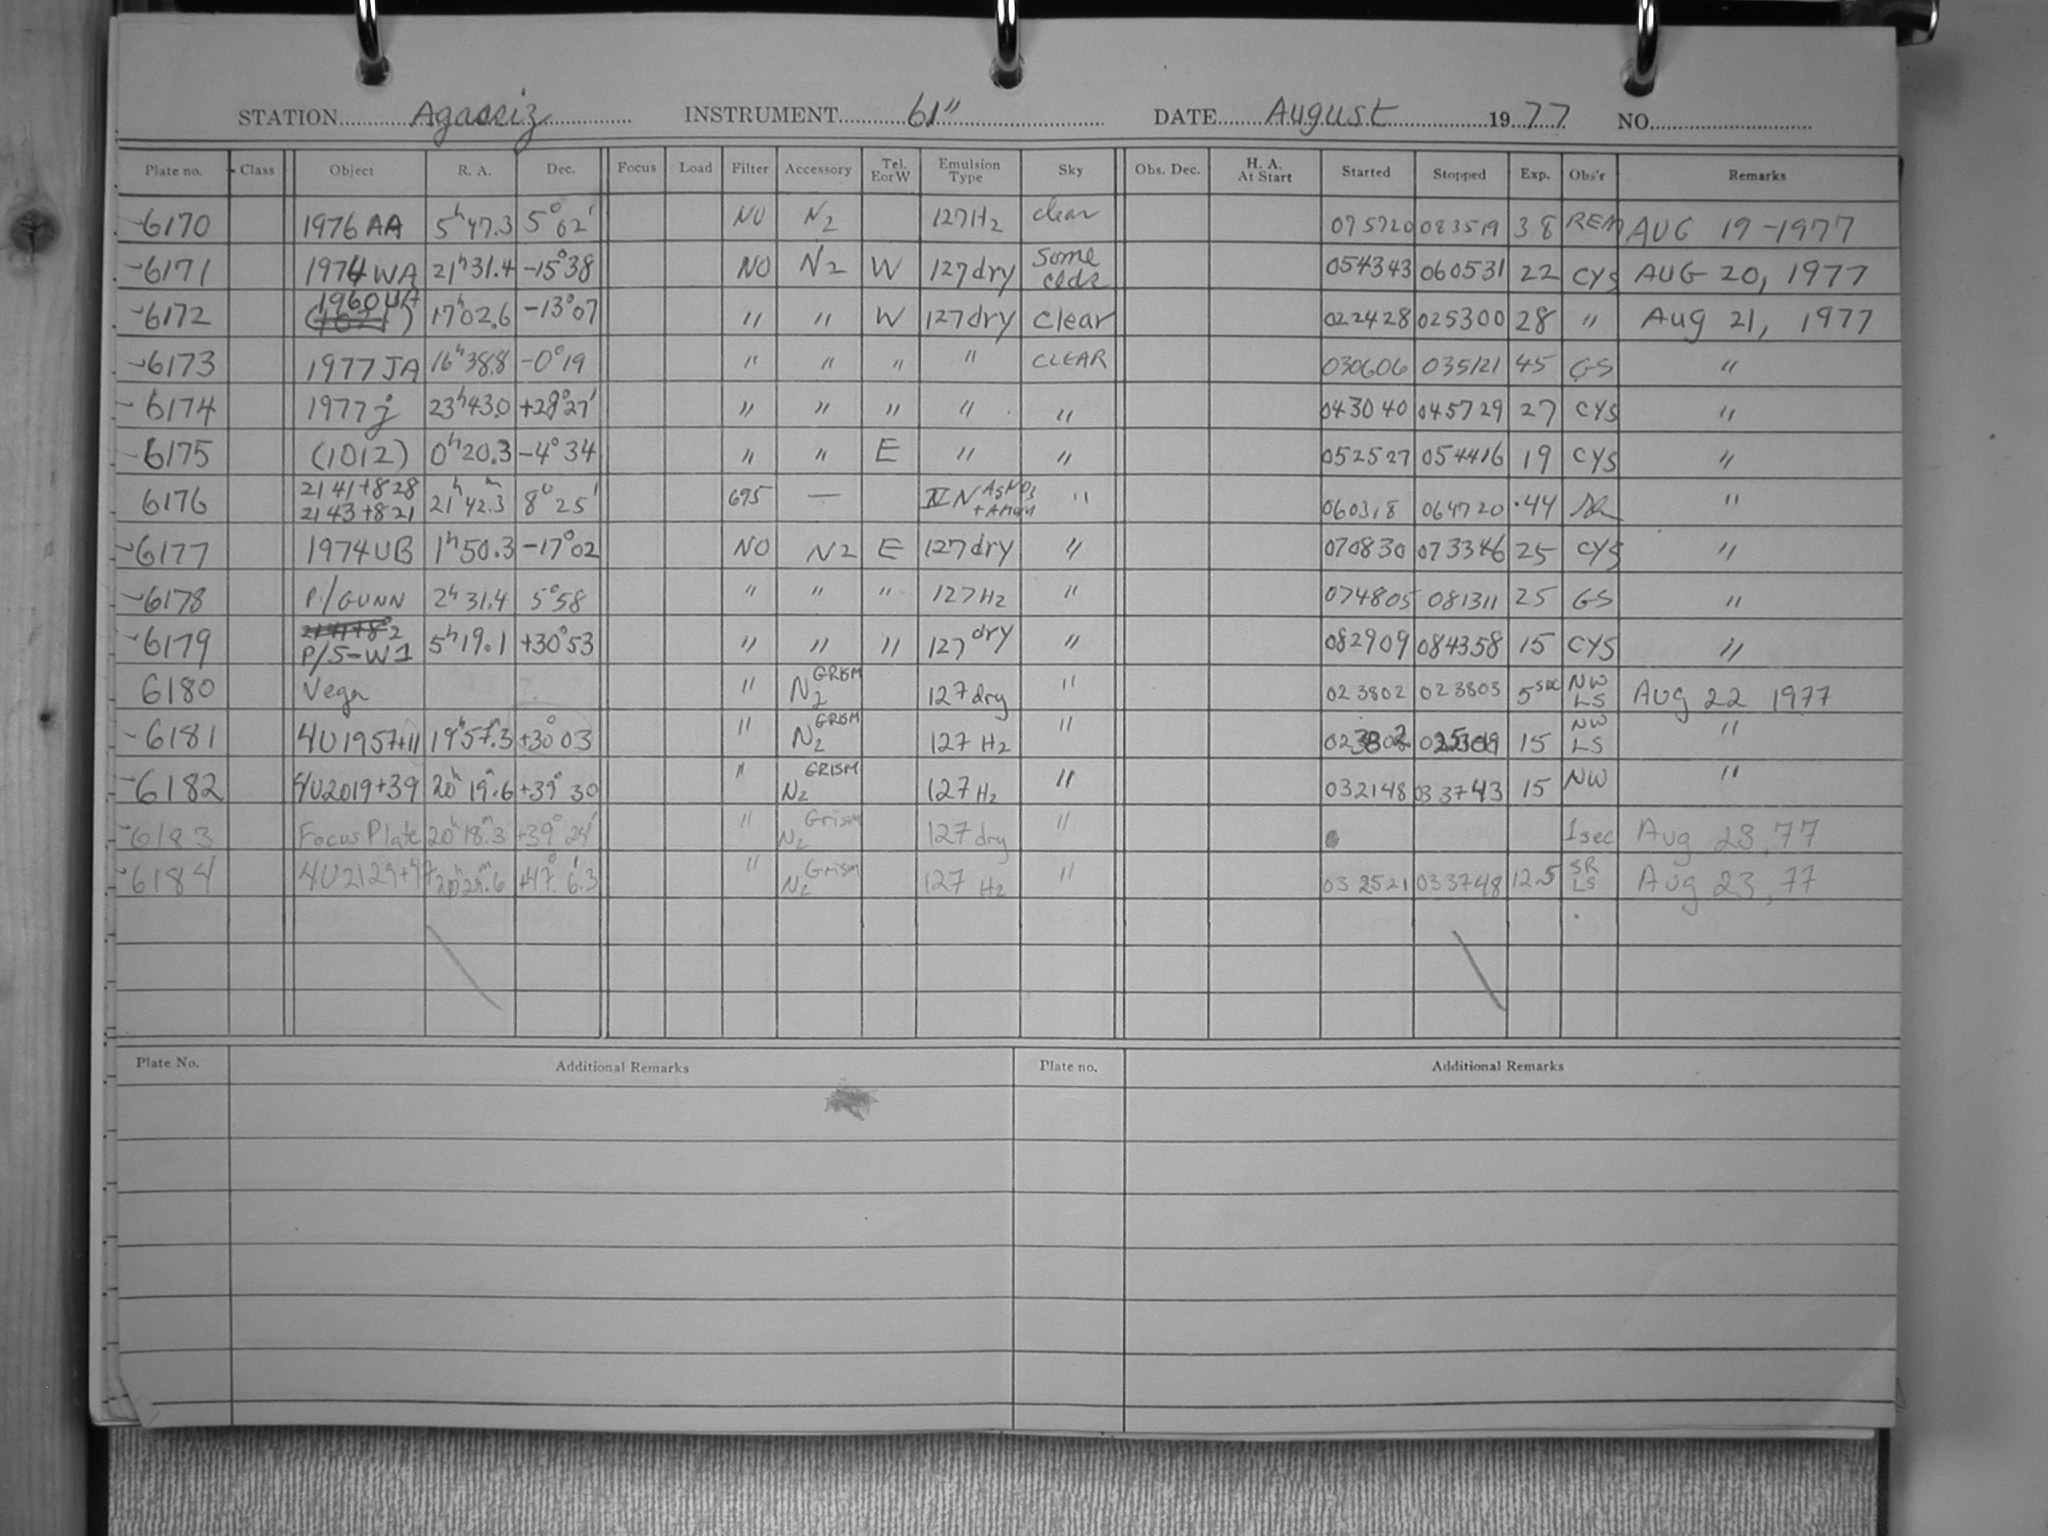 STATION Agassiz INSTRUMENT 61" DATE August 1977 NO.
Plate no. Class Object R. A. Dec. Focus Load Filter Accessory Tel. EorW Emulsion Type Sky Obs. Dec. H. A. At Start Started Stopped Exp. Obs'r Remarks
6170 1976 AA 5h47.3 5°02' NO N2 127Hz clear 075720 083519 38 REM AUG 19-1977
6171 1974 WA 21h31.4 -15°38 NO N2 W 127dry Some clds 054343 060531 22 CYS AUG 20, 1977
6172 1960 UA 17h02.6 -13°07 " " W 127dry clear 022428 025300 28 " Aug 21, 1977
6173 1977 JA 16h38.8 -0°19 " " " " CLEAR 030606 035121 45 GS "
6174 1977j 23h43.0 +28°27' " " " " " 043040 045729 27 CYS "
6175 (1012) 0h20.3 -4°34 " " E " " 052527 054416 19 CYS "
6176 2141+828 2143+821 21h42.3m 8°25' 695 — IV N AgNO3 " 060318 064720 .44 "
6177 1974UB 1h50.3 -17°02 NO N2 E 127dry " 070830 073346 25 CYS "
6178 P/GUNN 2h31.4 5°58 " " " 127Hz " 074805 081311 25 GS "
6179 P/S-W1 5h19.1 +30°53 " " " 127dry " 082909 084358 15 CYS "
6180 Vega " N2 GRISM 127dry " 023802 023803 5sec NW LS Aug 22 1977
6181 4U1957+11 19h57.3 +30°03 " N2 GRISM 127 Hz " 15 NW LS "
6182 4U2019+39 20h19m.6 +39°30 " N2 GRISM 127 Hz " 032148 033743 15 NW "
6183 Focus Plate 20h18m.3 +39°24' " N2 Grism 127dry " 1sec Aug 23, 77
6184 4U2129+47 +47°6.3 " N2 Grism 127 Hz " 032521 033748 12.5 SR LS Aug 23, 77
Plate No. Additional Remarks Plate no. Additional Remarks